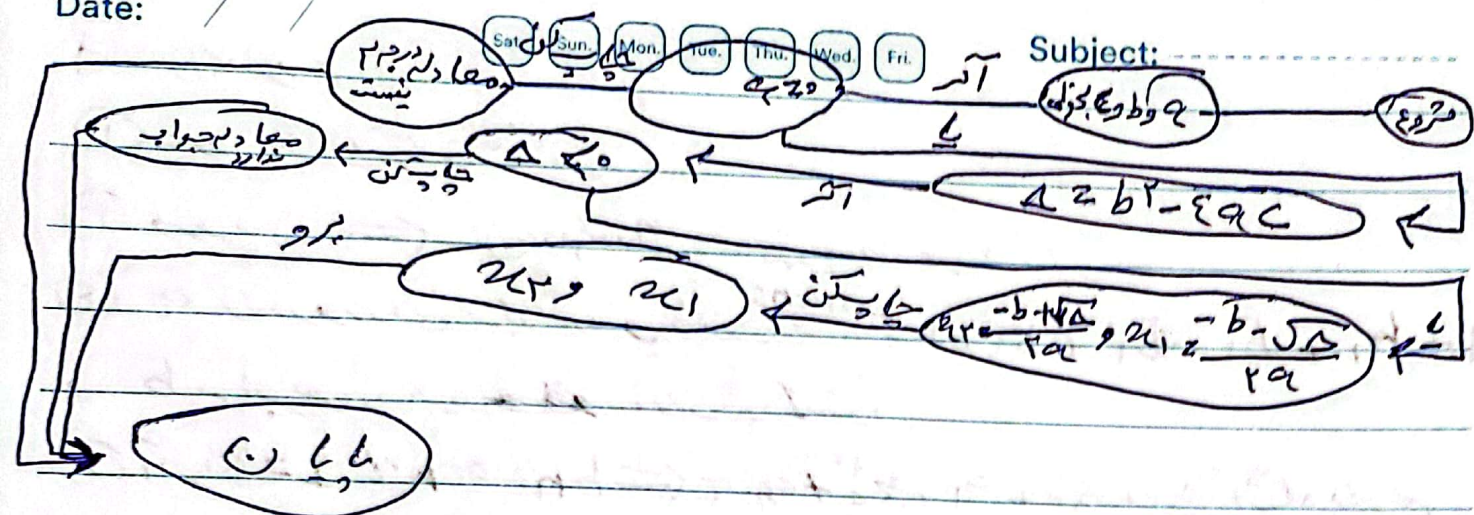 Date:
Sat. Sun. Mon. Tue. Thu. Wed. Fri.
Subject:
شروع
a و b و c بگیر
اگر
a = ۰
چاپ کن
معادله درجه ۲ نیست
یا
Δ = b² - ۴ac
اگر
Δ < ۰
چاپ کن
معادله جواب ندارد
یا
x₁ = -b - √Δ / ۲a و x₂ = -b + √Δ / ۲a
چاپ کن
x₁ و x₂
برو
پایان